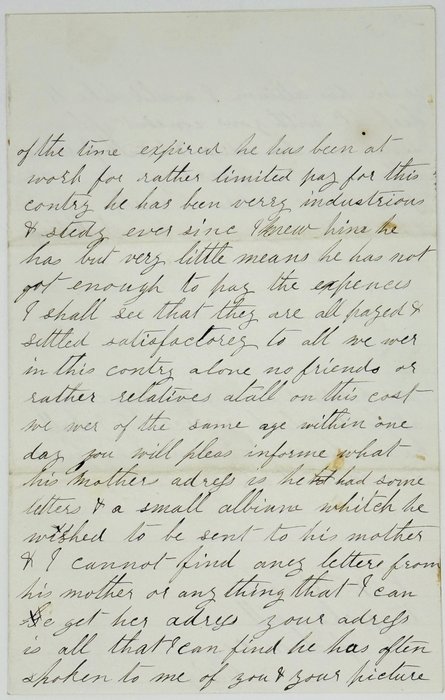 of the time expired he has been at
work for rather limited pay for this
contry he has been verry industrious
& stedy ever sinc I knew him he
has but very little means he has not
got enough to pay the expences
I shall see that they are all payed &
settled satisfactorey to all we wer
in this contry alone no friends or
rather relatives atall on this cost
we wer of the same age within one
day you will pleas informe what
his mothers adress is he had some
letters & a small albiam whitch he
wished to be sent to his mother
& I cannot find aney letters from
his mother or any thing that I can
get her adress your adress
is all that I can find he has often
spoken to me of you & your picture